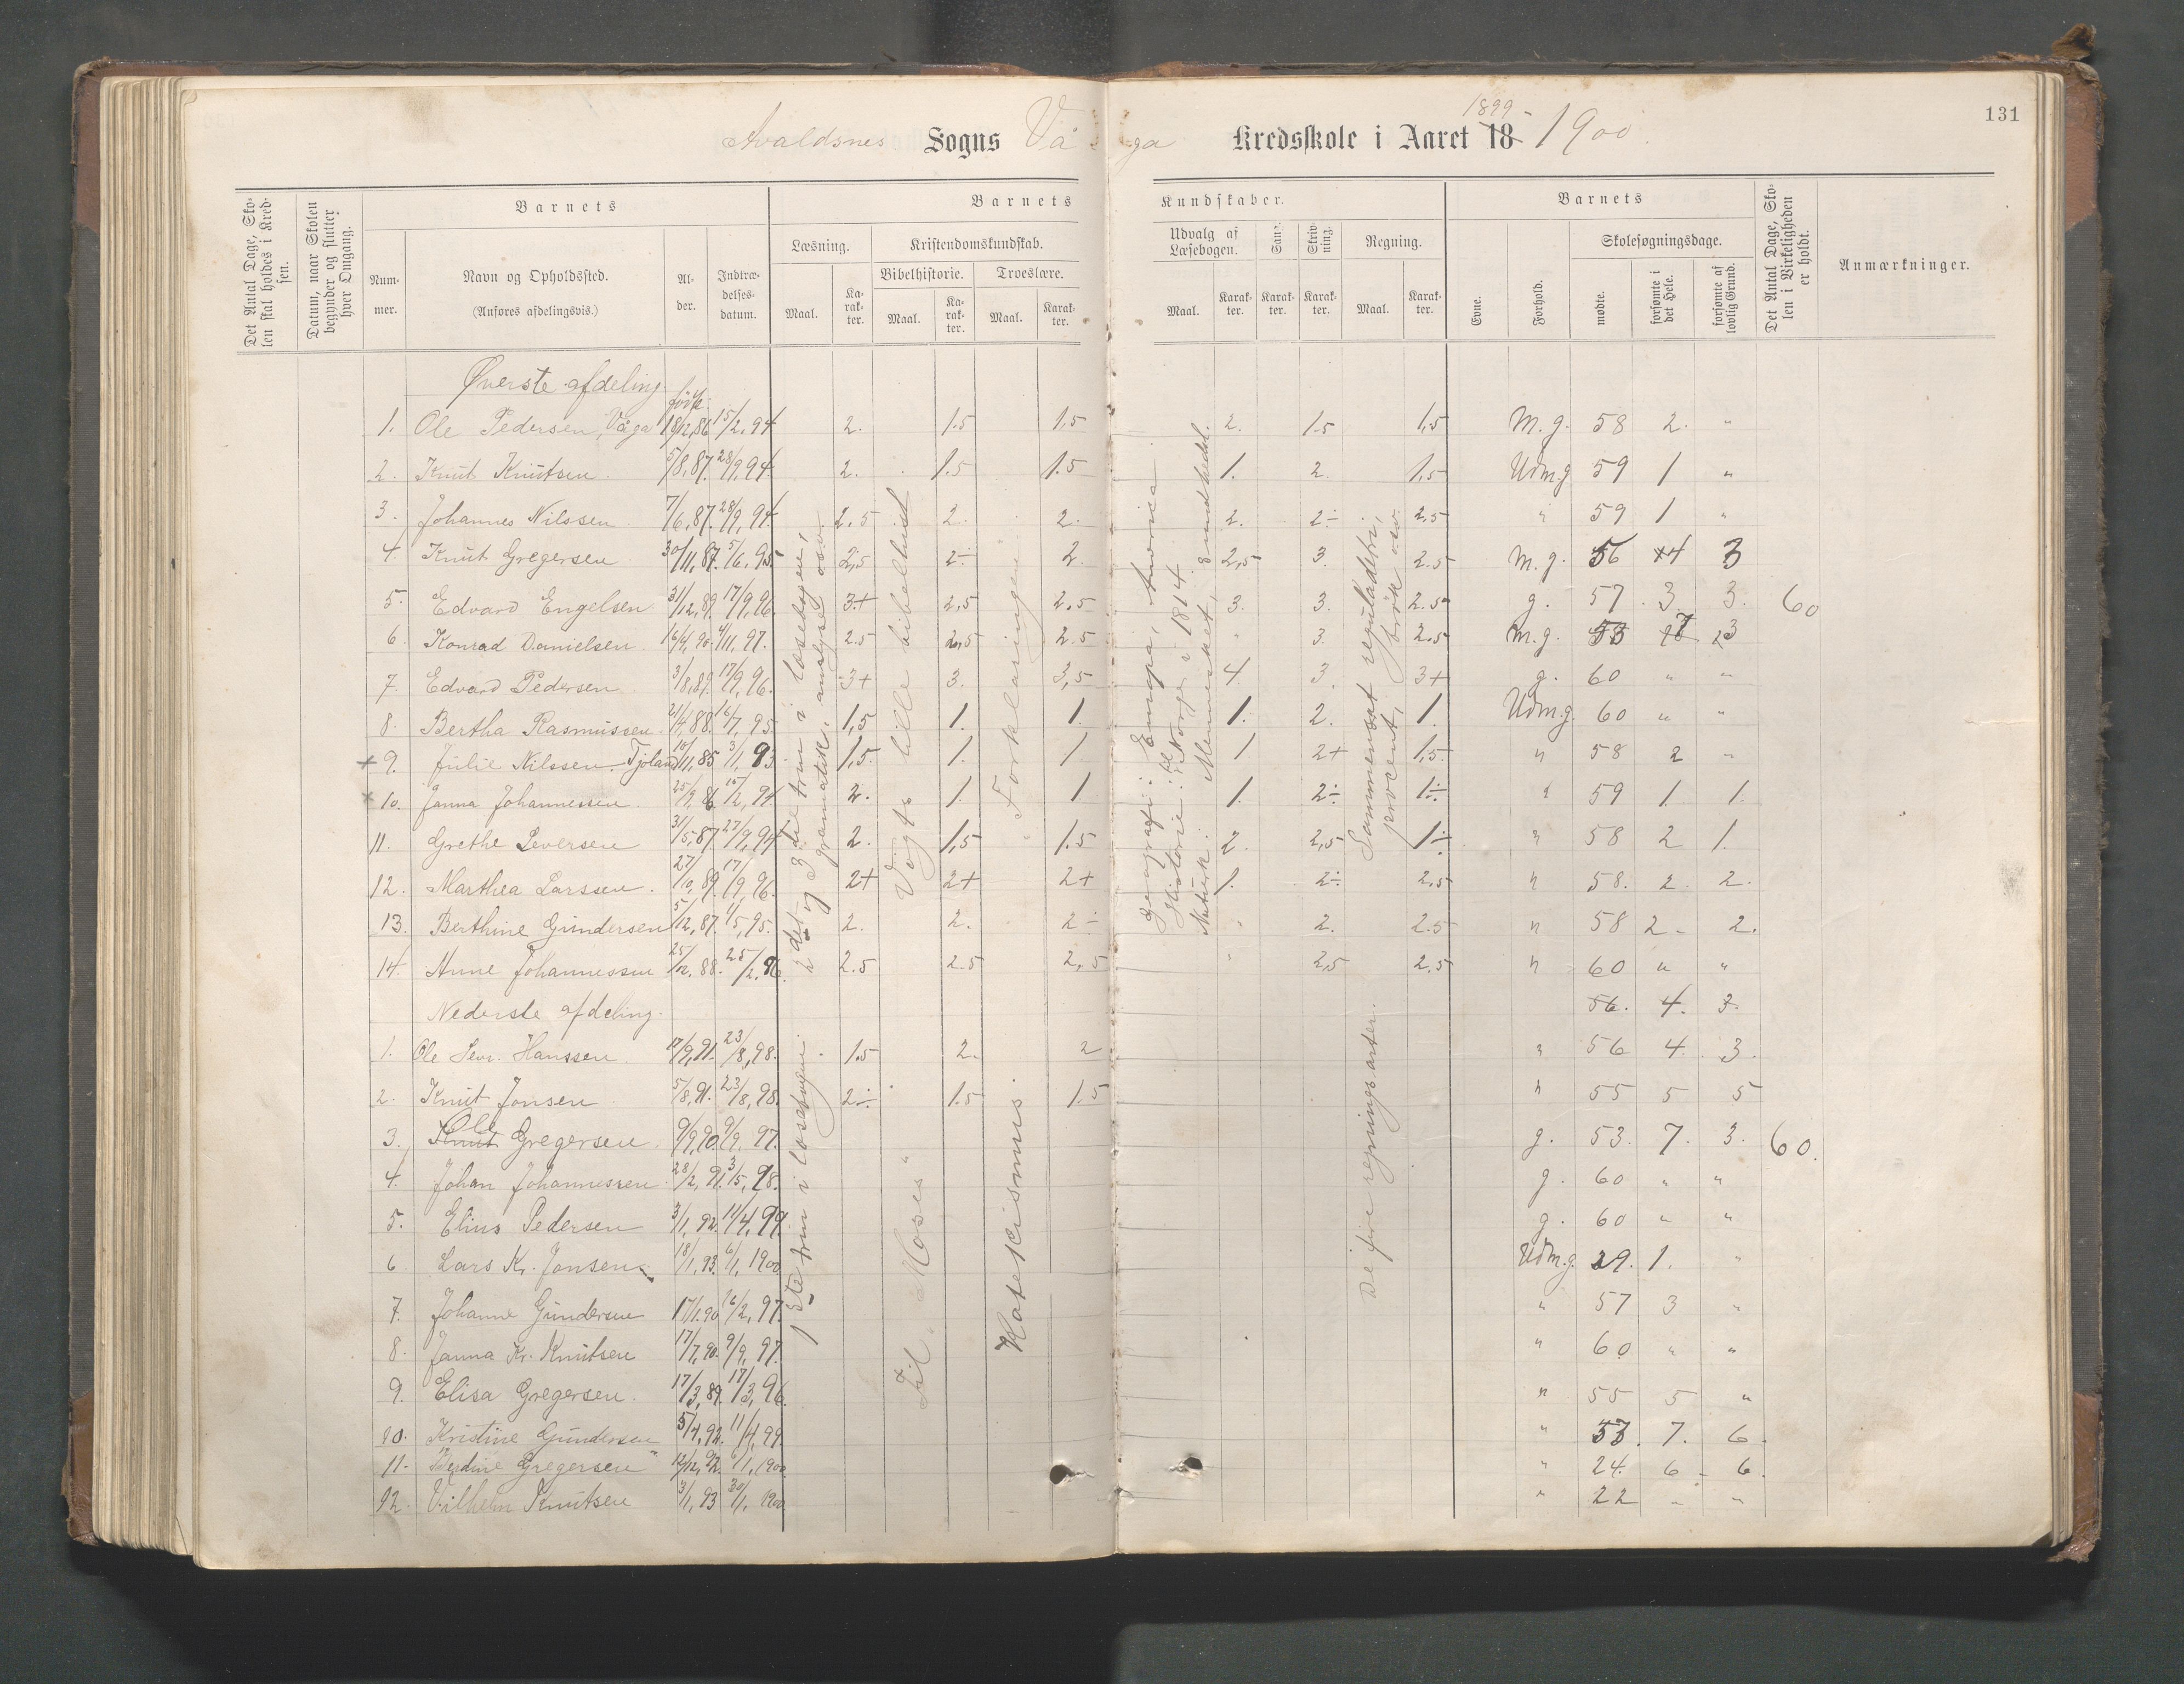 131
Avaldsnes Sogns Våga Kredsskole i Aaret 18 1899 - 1900.
Det Antal Dage, Skolen skal holdes i Kredsen.
Datum, naar Skolen begynder og slutter hver Omgang.
Barnets
Nummer.
Navn og Opholdssted.
(Anføres afdelingsvis.)
Alder.
Indtrædelsesdatum.
Barnets Kundskaber.
Læsning.
Maal.
Karakter.
Kristendomskundskab.
Bibelhistorie.
Maal.
Karakter.
Troeslære.
Maal.
Karakter.
Udvalg af Læsebogen.
Maal.
Karakter.
Sang.
Karakter.
Skrivning.
Karakter.
Regning.
Maal.
Karakter.
Barnets
Evne.
Forhold.
Skolesøgningsdage.
mødte.
forsømte i det Hele.
forsømte af lovlig Grund.
Det Antal Dage, Skolen i Virkeligheden er holdt.
Anmærkninger.
Øverste afdeling.
1. Ole Pedersen, Våga 18/12,86 15/2,94 2. 1.5 1,5 2. 1.5 1,5 M.g. 58 2. "
2. Knut Knutsen. 5/8,87. 28/9,94 2. 1.5 1.5 1. 2. 1,5 Udm.g 59 1 "
3. Johannes Nilssen. 7/6,87. 28/9,94. 2.5 2. 2. 2. 2÷ 2,5 " 59 1 "
4. Knut Gregersen 30/11,87. 5/6,95. 2,5 2÷ 2. 2,5 3. 2.5 M.g. 56 4 3
5. Edvard Engelsen 31/12,89. 17/9,96 3+ 2,5 2,5 3. 3. 2.5 g. 57. 3. 3. 60
6. Konrad Danielsen. 16/4,90. 4/11,97. 2.5 2,5 2.5 " 3. 2.5 M.g. 53 7 3
7. Edvard Pedersen 3/8,89. 17/9,96. 3+ 3. 3,5 4. 3. 3+ g. 60 " "
8. Bertha Rasmussen. 21/4,88. 16/7,95. 1,5 1. 1. 1. 2. 1. Udm.g. 60 " "
+ 9. Julie Nilssen. Tjoland 10/11,85 3/1,93. 1,5. 1. 1 1 2+ 1,5. " 58 2 "
x 10. Janna Johannessen 25/9,86. 15/2,94 2. 1. 1. 1. 2÷ 1÷ " 59 1. 1.
11. Grethe Seversen 31/5,87. 27/9,94 2. 1,5 1.5 2. 2,5 1÷ " 58 2 1.
12. Marthea Larssen. 27/10,89. 17/9,96. 2+ 2+ 2+ 1. 2÷ 2,5 " 58. 2. 2.
13. Berthine Gundersen 5/12,87. 1/5,95. 2. 2. 2÷ " 2. 2.5 " 58 2 - 2.
14. Anne Johannessen 25/12,88. 25/2,96. 2.5 2.5 2,5 " 2,5 2.5 " 60 " "
2det og 3die trin i læsebogen,
grammatik, analyse osv.
Vogts lille bibelhist
Forklaringen
Geografi: Europa, Amerika
Historie: Norge til 1814
Naturk.: Mennesket, sundhedsl.
Sammensat reguladetri,
procent, brøk osv.
Nederste afdeling. 56. 4. 3.
1. Ole Sev. Hanssen. 17/9,91. 23/8,98. 1.5 2. 2 " 56 4. 3.
2. Knut Jonsen 5/8,91. 23/8,98. 2÷ 1.5 1.5 " 55 5 5
3. Knut Ole Gregersen. 9/9,90. 9/9,97. g. 53. 7. 3. 60.
4. Johan Johannessen 28/2,91. 3/5,98. g. 60 " "
5. Elius Pedersen 3/1,92. 11/4,99. g. 60 " "
6 Lars Kr. Jonsen. 18/1,93. 6/1,1900 Udm.g. 29. 1. "
7. Johanne Gundersen 17/1.90 16/2,97. " 57 3 "
8. Janna Kr. Knutsen 17/7,90. 9/9,97. " 60 " "
9. Elisa Gregersen. 17/3,89. 17/3,96. " 55 5 "
10. Kristine Gundersen 5/4,92. 11/4,99 " 53. 7. 6.
11. Berdine Gregersen 12/12,92. 6/1,1900 " 24. 6 - 6.
12. Vilhelm Knutsen 3/1,93 30/1,1900 " 22 " "
1ste trin i læsebogen.
Til Moses "
Katekismus.
De fire regningsarter.